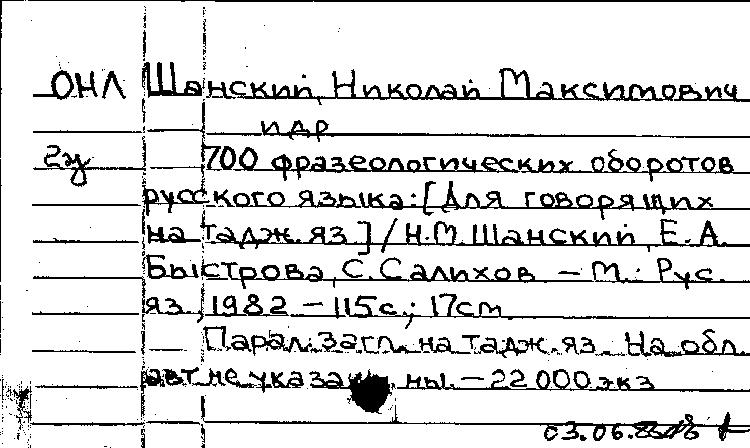 ОНЛ Шанский, Николай Максимович
и др
2у 700 фразеологических оборотов
русского языка: [Для говорящих
на тадж. яз.] / Н.М. Шанский, Е.А.
Быстрова, С. Салихов – М.: Рус.
яз., 1982 – 115с.; 17см.
Парал. загл. на тадж. яз. На обл.
авт. не указаны. – 22 000 экз
03.06.